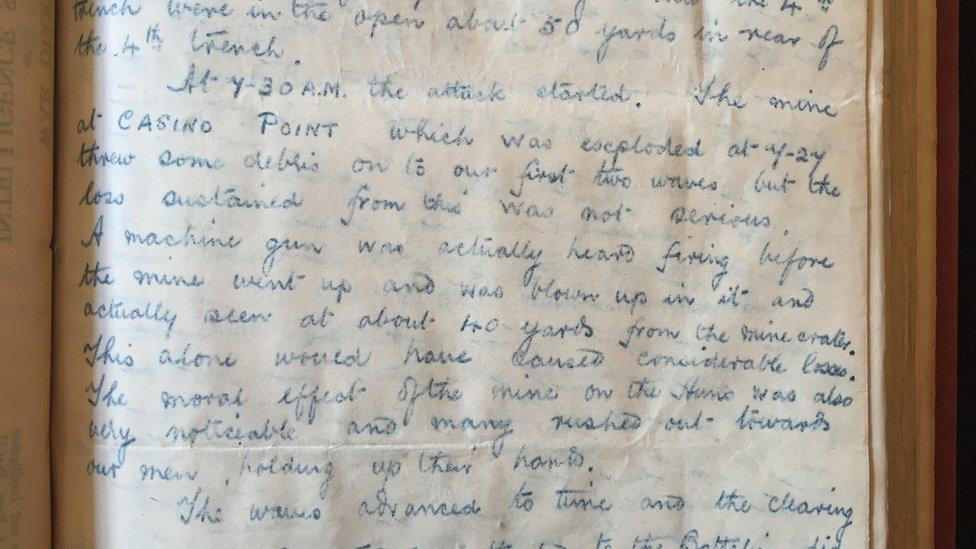 trench were in the open about 50 yards in rear of
the 4th trench.
At 7-30 A.M. the attack started. The mine
at CASINO POINT which was exploded at 7-27
threw some debris on to our first two waves but the
loss sustained from this was not serious.
A machine gun was actually heard firing before
the mine went up and was blown up in it and
actually seen at about 40 yards from the mine crater.
This alone would have caused considerable losses.
The moral effect of the mine on the Huns was also
very noticeable and many rushed out towards
our men holding up their hands.
The waves advanced to time and the clearing
to the Battalion did
INTELLIGENCE S
WAR D